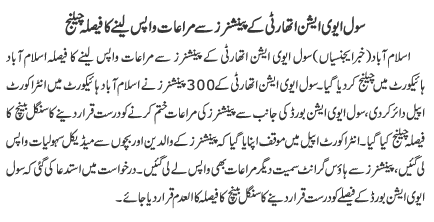 سول ایوی ایشن اتھارٹی کے پینشنرز سے مراعات واپس لینے کا فیصلہ چیلنج
اسلام آباد (خبر ایجنسیاں) سول ایوی ایشن اتھارٹی کے پینشنرز سے مراعات واپس لینے کا فیصلہ اسلام آباد
ہائیکورٹ میں چیلنج کر دیا گیا۔ سول ایوی ایشن اتھارٹی کے 300 پینشنرز نے اسلام آباد ہائیکورٹ میں انٹرا کورٹ
اپیل دائر کر دی، سول ایوی ایشن بورڈ کی جانب سے پینشنرز کی مراعات ختم کرنے کو درست قرار دینے کا سنگل بینچ کا
فیصلہ چیلنج کیا گیا۔ انٹرا کورٹ اپیل میں موقف اپنایا گیا کہ پینشنرز کے والدین اور بچوں سے میڈیکل سہولیات واپس
لی گئیں، پینشنرز سے ہاؤس گرانٹ سمیت دیگر مراعات بھی واپس لے لی گئیں۔ درخواست میں استدعا کی گئی کہ سول
ایوی ایشن بورڈ کے فیصلے کو درست قرار دینے کا سنگل بینچ کا فیصلہ کالعدم قرار دیا جائے۔